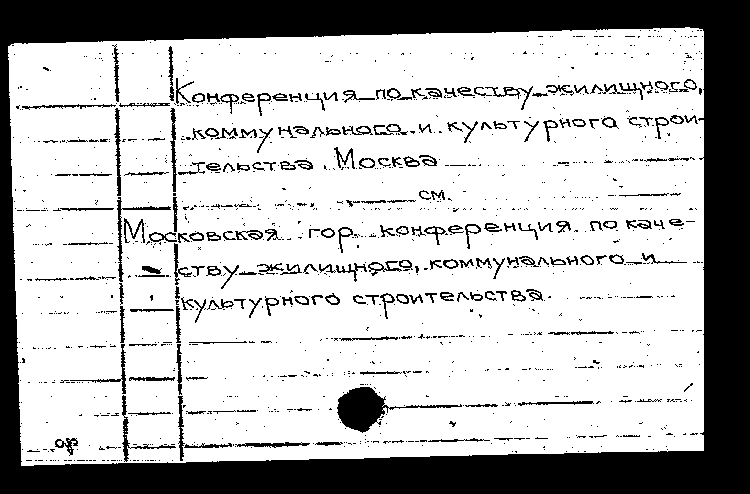 Конференция по качеству жилищного,
коммунального и культурного строи-
тельства. Москва
см.
Московская гор. конференция по каче-
ству жилищного, коммунального и
культурного строительства.
ор